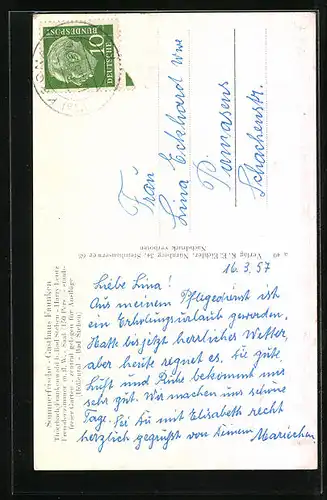 Sommerfrische - Gasthaus Franken
freier Garten - zentral gelegen für Ausflüge
DEUTSCHE
BUNDESPOST
10
Frau
Lina Eckhard Wwe
Pirmasens
Schachenstr.
Nachdruck verboten
16.3.57
Liebe Lina!
Aus meinem Pflegedienst ist
ein Erholungsurlaub geworden.
Hatte bis jetzt herrliches Wetter,
aber heute regnet es. Die gute
Luft und Ruhe bekommt uns
sehr gut. Wir machen uns schöne
Tage. Sei Du mit Elisabeth recht
herzlich gegrüßt von Deinem Mariechen